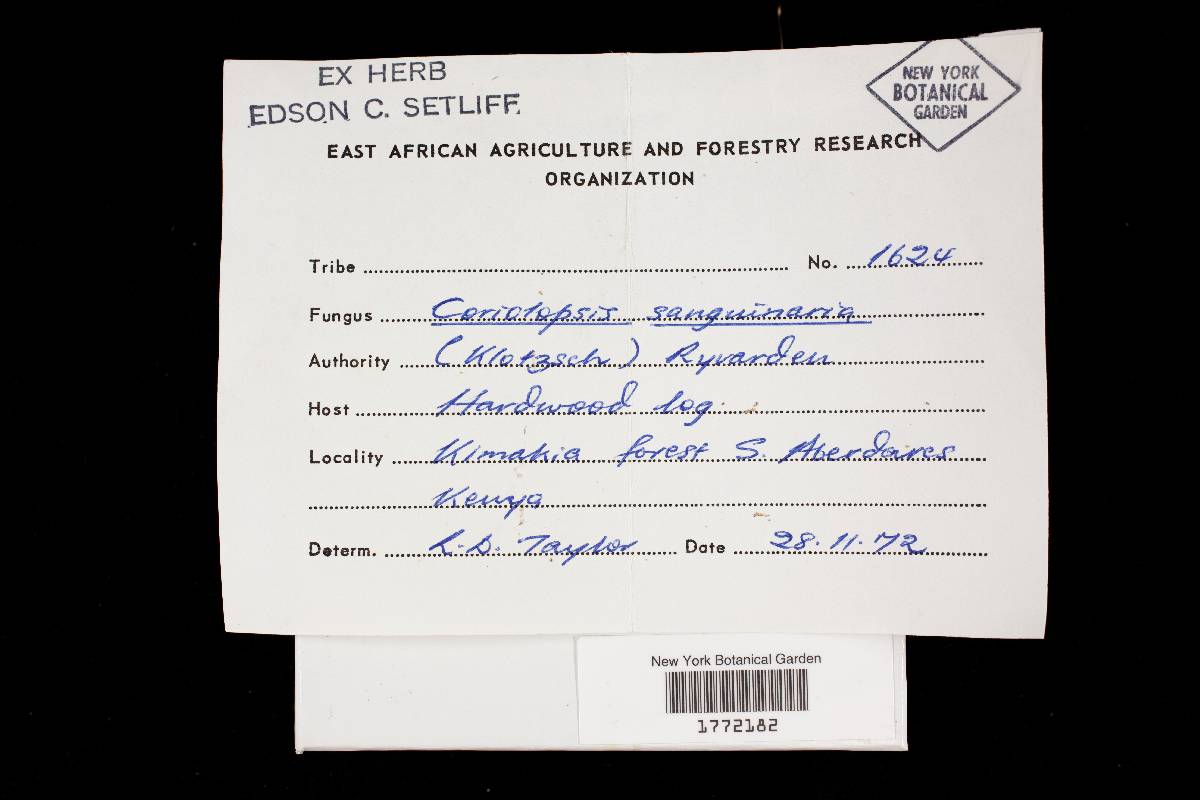 EX HERB
EDSON C. SETLIFF
NEW YORK
BOTANICAL
GARDEN
EAST AFRICAN AGRICULTURE AND FORESTRY RESEARCH
ORGANIZATION
Tribe No. 1624
Fungus Coriolopsis sanguinaria
Authority (Klotzsch) Ryvarden
Host Hardwood log
Locality Kimakia forest S. Aberdares
Kenya
Determ. L.D. Taylor Date 28.11.72
New York Botanical Garden
1772182